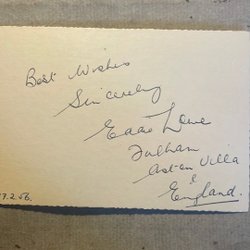 Best Wishes
Sincerely
Eddie Lowe
Fulham
Aston Villa
&
England.
7.2.56.